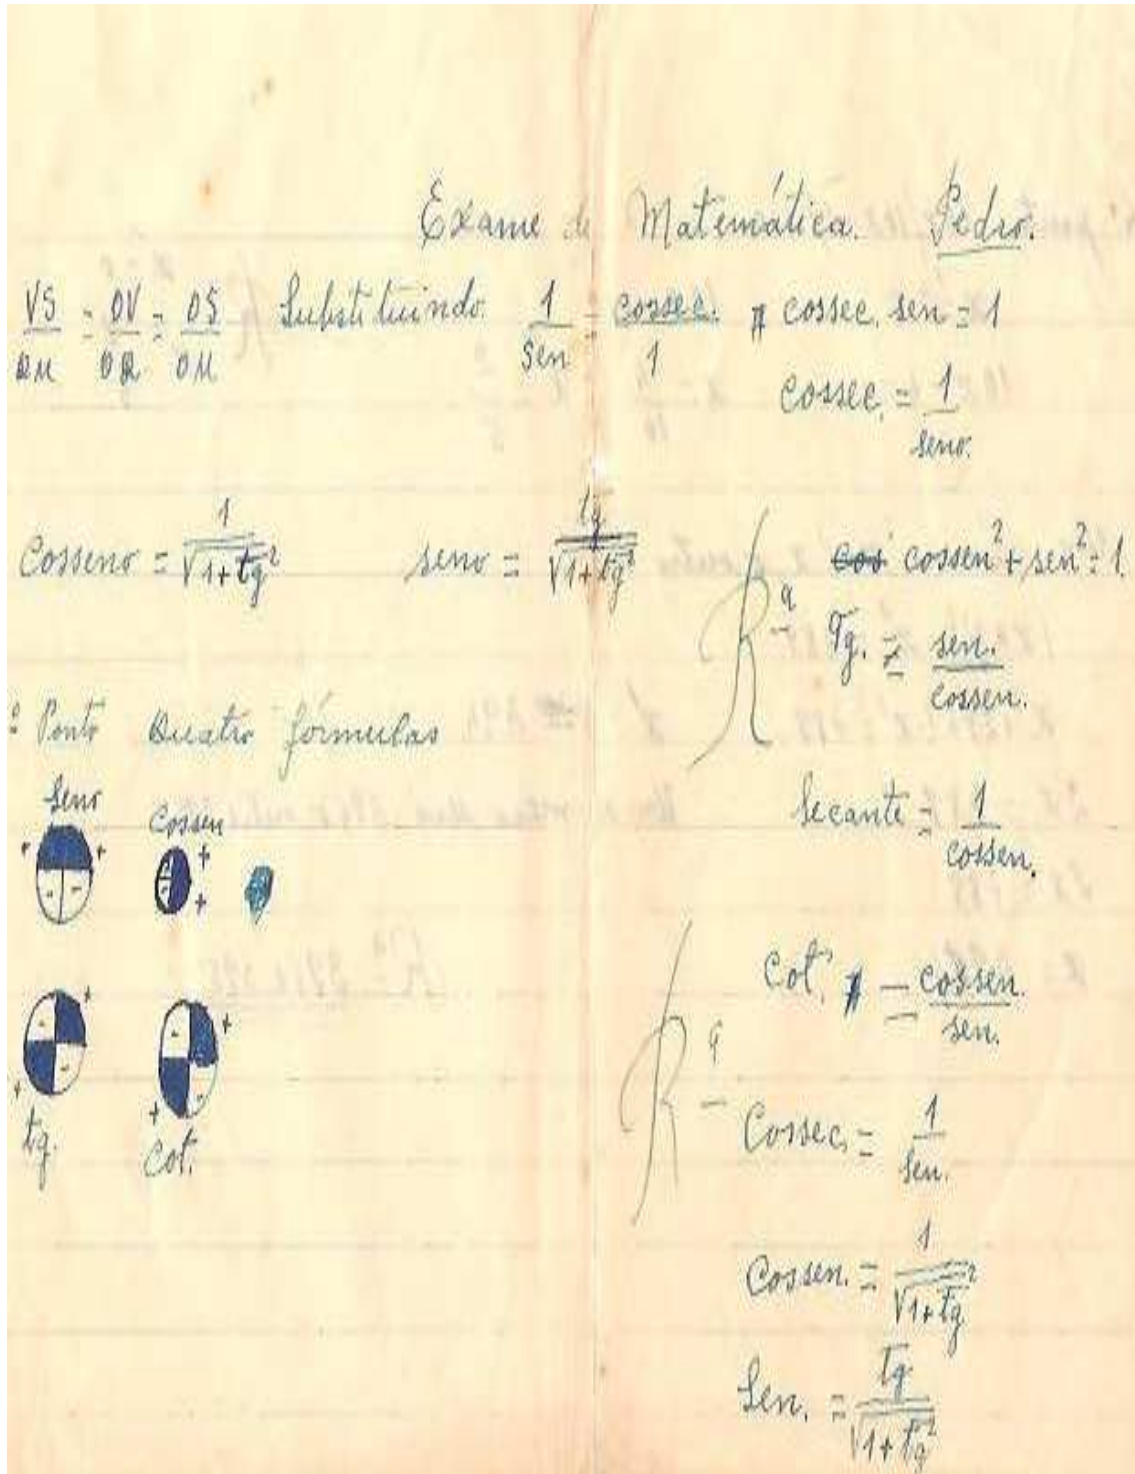 Exame de Matemática. Pedro.
VS/OM = OV/OR = OS/OM Substituindo. 1/sen = cossec./1 cossec. sen = 1
cossec. = 1/seno.
Cosseno = 1/√1+tg² seno = tg/√1+tg² cossen² + sen² = 1.
R- Tg. = sen./cossen.
º Ponto Quatro fórmulas
Secante = 1/cossen.
seno cossen
+ + - -
+ +
Cot. = cossen./sen.
+ - - +
+ - - +
tg. Cot.
R- Cossec. = 1/sen.
Cossen. = 1/√1+tg²
Sen. = tg/√1+tg²